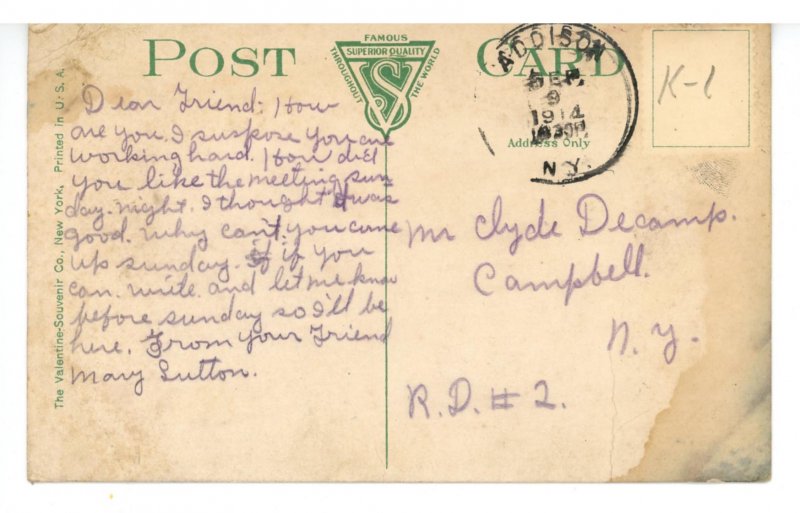 POST CARD
FAMOUS
SUPERIOR QUALITY
THROUGHOUT THE WORLD
VS
ADDISON
SEP
9
1914
N.Y.
Address Only
K-1
The Valentine-Souvenir Co., New York, Printed in U.S.A.
Dear Friend: How
are you. I suspose you are
working hard. How did
you like the meeting sun
day. night. I thought it was
good. Why can't you come
up sunday. if you
can. write. and let me know
before sunday so I'll be
here. From your Friend
Mary Sutton.
Mr Clyde Decamp.
Campbell.
N. Y.
R.D. # 2.